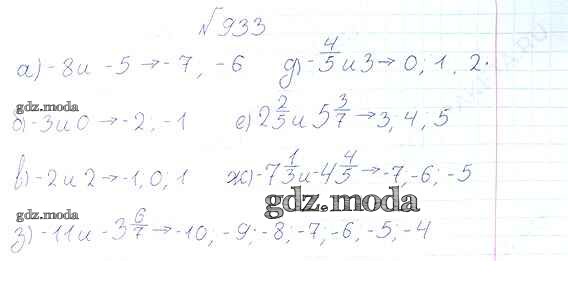 №933
а) -8 и -5 → -7, -6
д) -4/5 и 3 → 0; 1, 2.
gdz.moda
б) -3 и 0 → -2, -1
е) 2 2/5 и 5 3/7 → 3, 4; 5
в) -2 и 2 → -1, 0, 1
ж) -7 1/3 и -4 4/5 → -7, -6; -5
gdz.moda
gdz.moda
з) -11 и -3 6/7 → -10; -9; -8; -7; -6, -5; -4